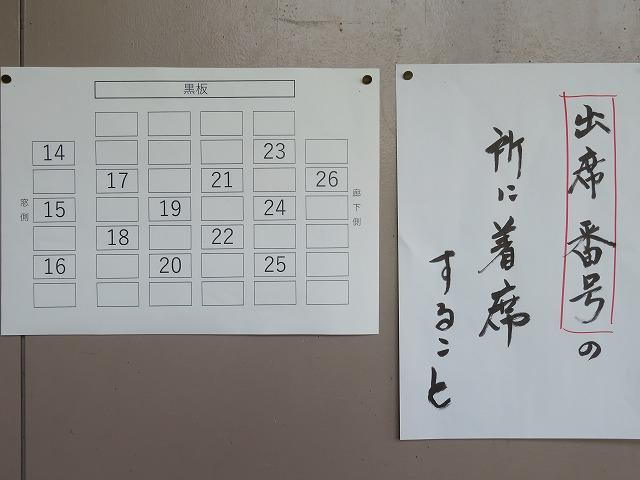 黒板
14 23
17 21 26
15 19 24
18 22
16 20 25
窓側
廊下側
出席番号の
所に着席
すること